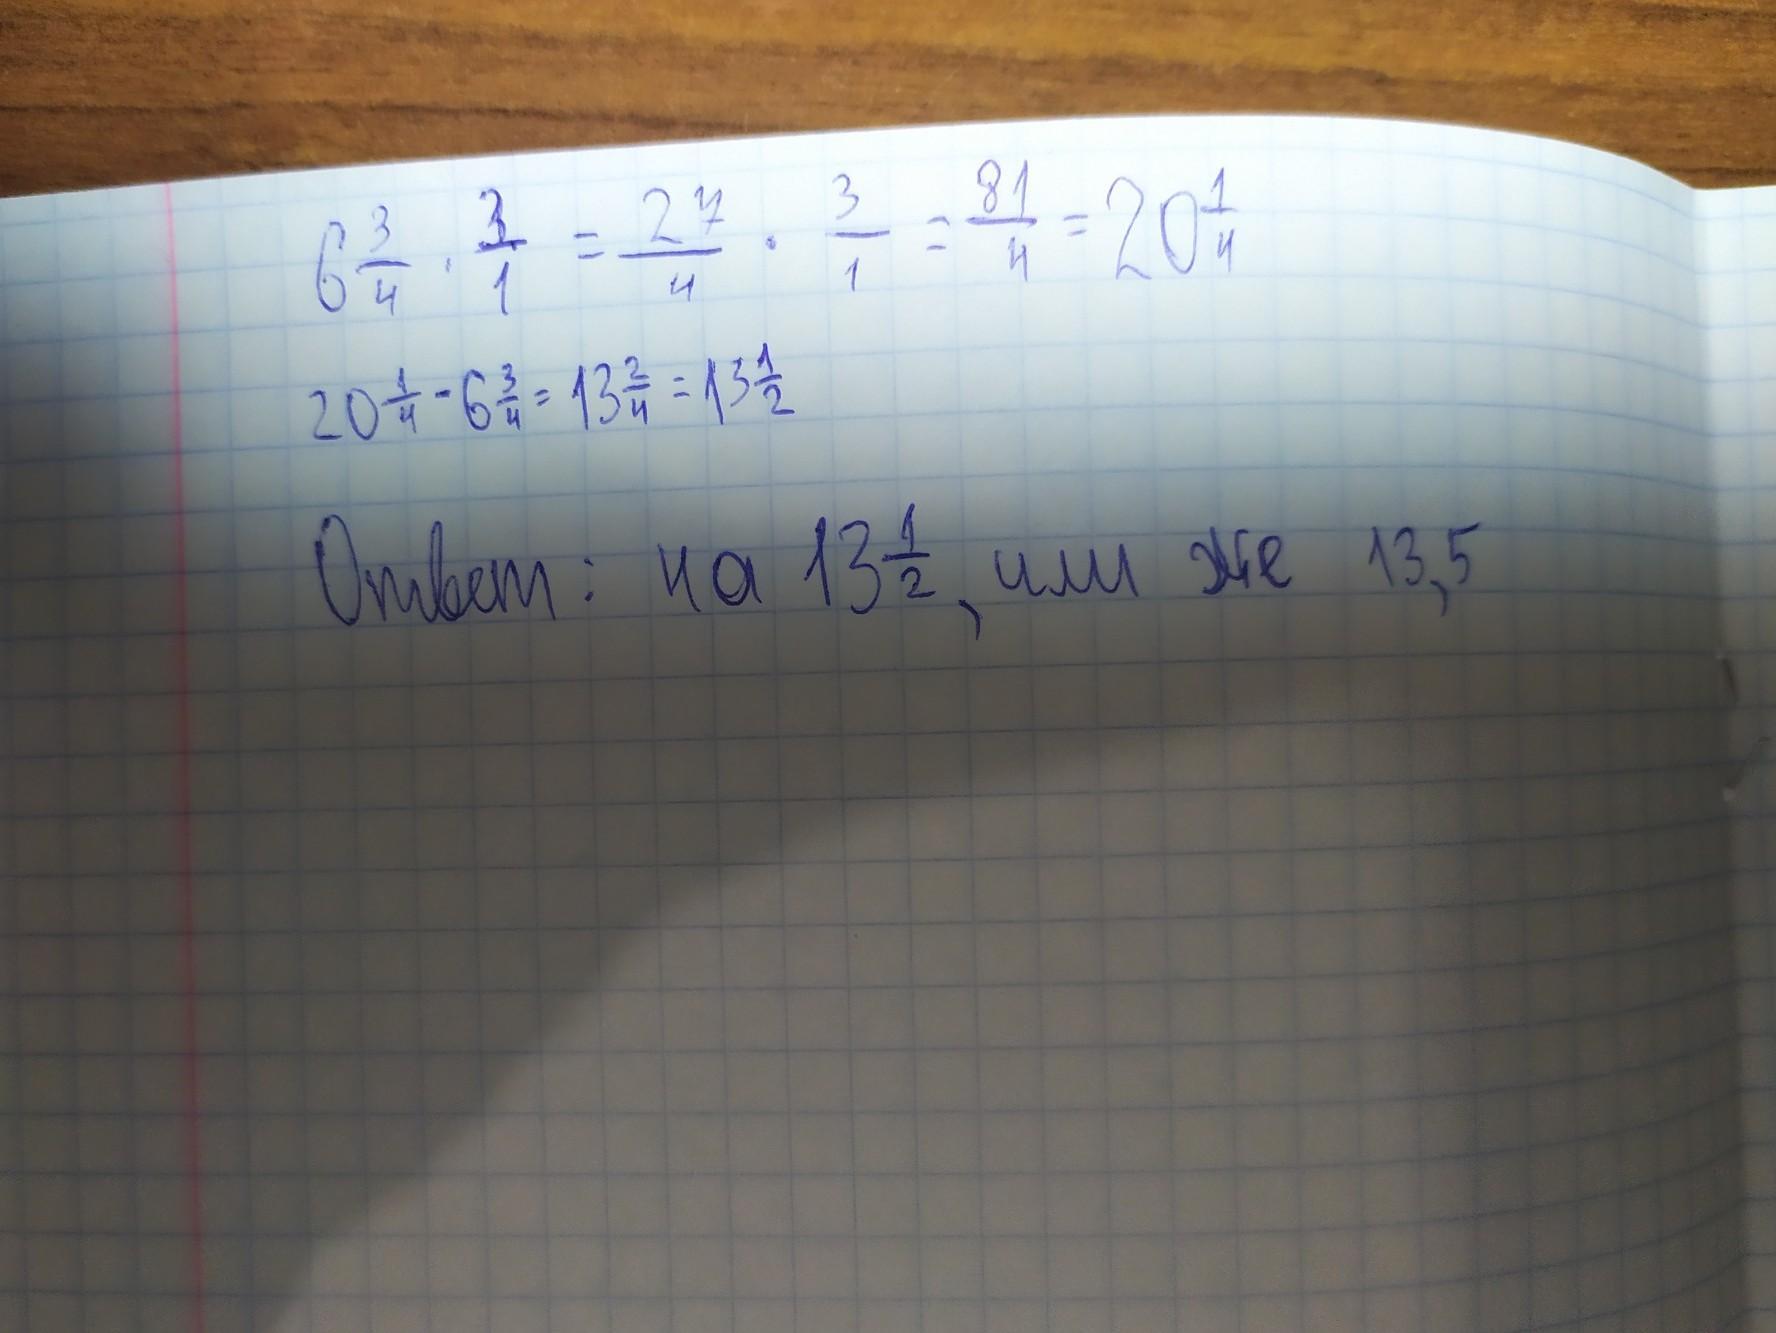 6 3/4 · 3/1 = 27/4 · 3/1 = 81/4 = 20 1/4
20 1/4 - 6 3/4 = 13 2/4 = 13 1/2
Ответ: на 13 1/2, или же 13,5